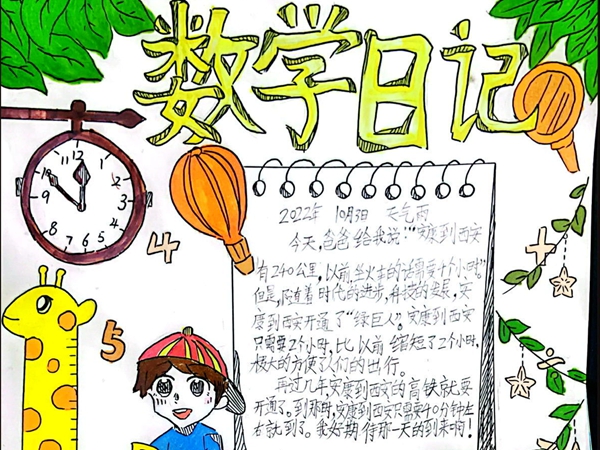 数学日记
12
11
1
10
2
9
3
8
4
7
5
6
4
5
2022年 10月3日 天气雨
今天,爸爸给我说:"安康到西安
有240公里,以前坐火车的话需要十个小时"
但是,随着时代的进步,科技的发展,安
康到西安开通了"绿巨人"。安康到西安
只需要2个小时,比以前缩短了2个小时,
极大的方便了人们的出行。
再过几年,安康到西安的高铁就要
开通了。到那时,安康到西安只需要40分钟左
右就到了。我好期待那一天的到来啊!